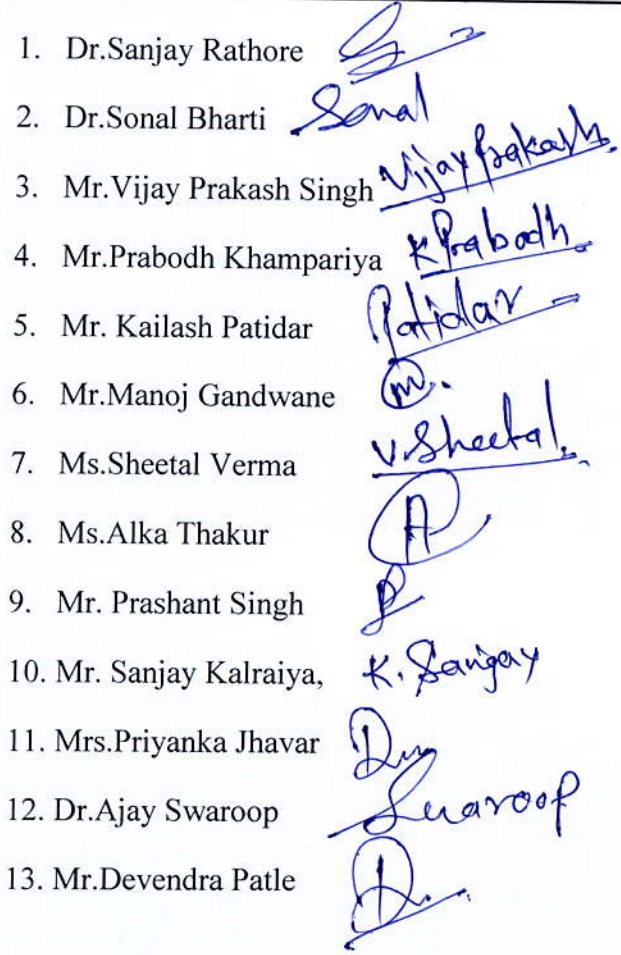 1. Dr.Sanjay Rathore
2. Dr.Sonal Bharti Sonal
3. Mr.Vijay Prakash Singh Vijay Prakash.
4. Mr.Prabodh Khampariya K Prabodh.
5. Mr. Kailash Patidar Patidar
6. Mr.Manoj Gandwane m.
7. Ms.Sheetal Verma V. Sheetal.
8. Ms.Alka Thakur A
9. Mr. Prashant Singh P
10. Mr. Sanjay Kalraiya, K. Sanjay
11. Mrs.Priyanka Jhavar
12. Dr.Ajay Swaroop Swaroop
13. Mr.Devendra Patle D.